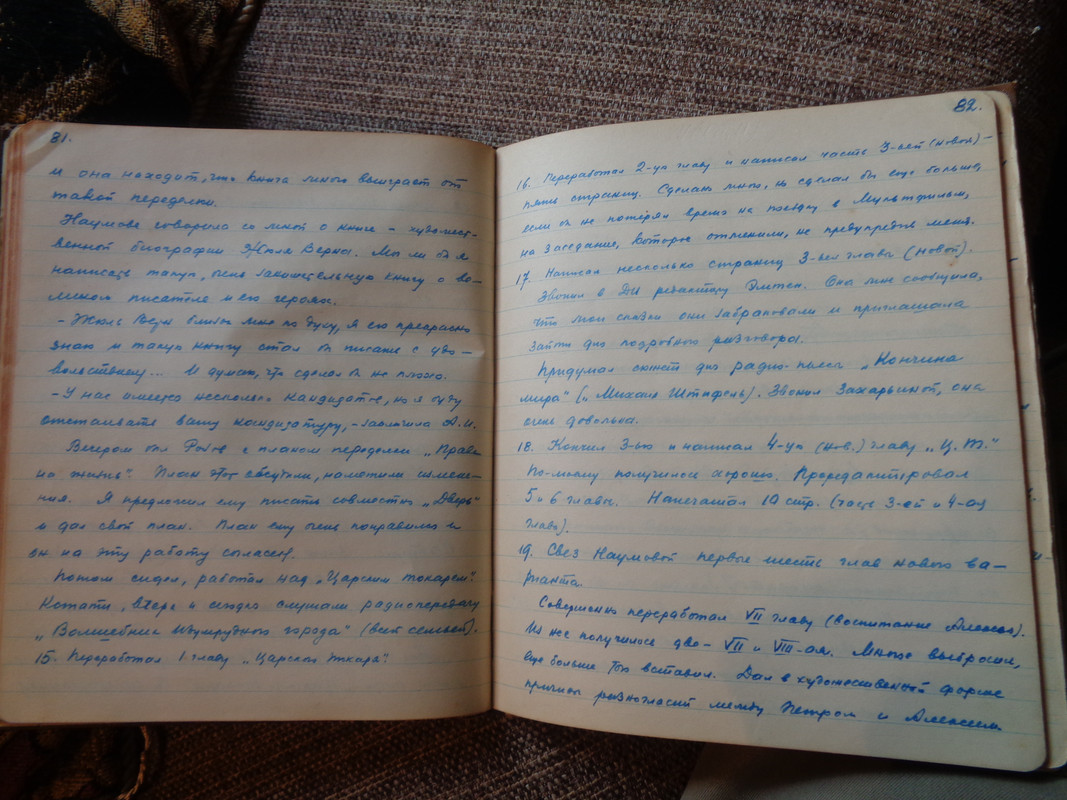 81.
и она находит, что книга много выиграет от
такой переделки.
Наумова говорила со мной о книге – художест-
венной биографии Жюля Верна. Мог ли бы я
написать такую, очень занимательную книгу о ве-
ликом писателе и его героях.
– Жюль Верн близок мне по духу, я его прекрасно
знаю и такую книгу стал бы писать с удо-
вольствием... И думаю, что сделал бы не плохо.
– У нас имеется несколько кандидатов, но я буду
отстаивать вашу кандидатуру, – заявила А.И.
Вечером был с планом переделки „Права
на жизнь". План этот обсудили, наметили измене-
ния. Я предложил ему писать совместно „Дверь"
и дал свой план. План ему очень понравился и
он на эту работу согласен.
Потом сидел, работал над „Царским токарем".
Кстати, вчера и сегодня слушали радиопередачу
„Волшебник Изумрудного города" (всей семьей).
15. Переработал 1 главу „Царского токаря".
82.
16. Переработал 2-ую главу и написал часть 3-ьей (новой) –
пять страниц. Сделано много, но сделал бы еще больше,
если бы не потерял время на поездку в Мультфильм,
на заседание, которое отменили, не предупредив меня.
17. Написал несколько страниц 3-ьей главы (новой).
Звонил в ДИ редактору. Она мне сообщила,
что мои сказки они забраковали и приглашала
зайти для подробного разговора.
Придумал сюжет для радио-пьесы „Кончина
мира" (и Михаил Штифель). Звонил Захарьиной, она
очень довольна.
18. Кончил 3-ью и написал 4-ую (нов.) главу „Ц.Т."
По-моему получилось хорошо. Проредактировал
5 и 6 главы. Напечатал 10 стр. (часть 3-ей и 4-ая
глава).
19. Свез Наумовой первые шесть глав нового ва-
рианта.
Совершенно переработал VII главу (воспитание Алексея).
Из нее получилось две – VII и VIII-ая. Много выбросил,
еще больше того вставил. Дал в художественной форме
причины разногласий между Петром и Алексеем